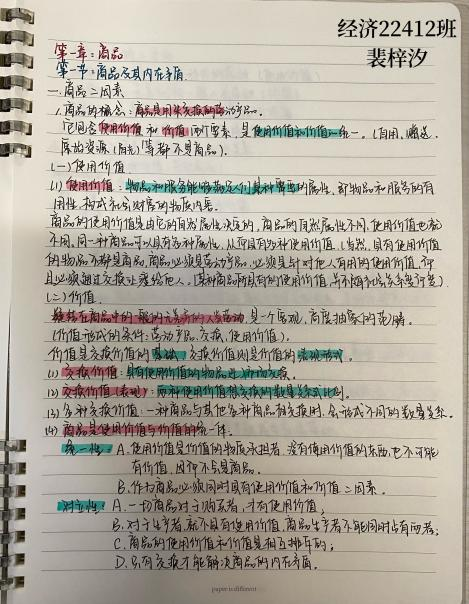 经济22412班
裴梓汐
第一章：商品
第一节：商品及其内在矛盾
一.商品二因素
1.商品的概念：商品是用来交换的劳动产品。
它包含使用价值和价值两个要素，是使用价值和价值的统一。(自用、赠送、
原始资源(阳光)等都不是商品)。
(一)使用价值
(1)使用价值：物品和服务能够满足人们某种需要的属性，即物品和服务的有
用性，构成社会财富的物质内容。
商品的使用价值是由它的自然属性决定的，商品的自然属性不同，使用价值也就
不同，同一种商品可以具有多种属性，从而具有多种使用价值。(当然，具有使用价值
的物品不都是商品，商品必须是劳动产品，必须是对他人有用的使用价值，而
且必须通过交换让渡给他人。
(二)价值
凝结在商品中的一般的无差别的人类劳动，是一个客观、高度抽象的范畴。
(价值形成的条件：劳动产品、交换、使用价值)。
价值是交换价值的基础，交换价值则是价值的表现形式。
(1)交换价值：具有使用价值的物品进行的交换。
(2)交换价值(表现)：两种使用价值相交换的数量关系或比例。
(3)各种交换价值：一种商品与其他各种商品相交换时，会形成不同的数量关系。
(4)商品是使用价值与价值的统一体。
统一性：A.使用价值是价值的物质承担者，没有使用价值的东西，也不可能
有价值，因而不是商品。
B.作为商品必须同时具有使用价值和价值二因素。
对立性：A.一切商品对于购买者，才有使用价值；
B.对于生产者，就不具有使用价值，商品生产者不能同时占有两者；
C.商品的使用价值和价值是相互排斥的；
D.只有交换才能解决商品的内在矛盾。
paper is different